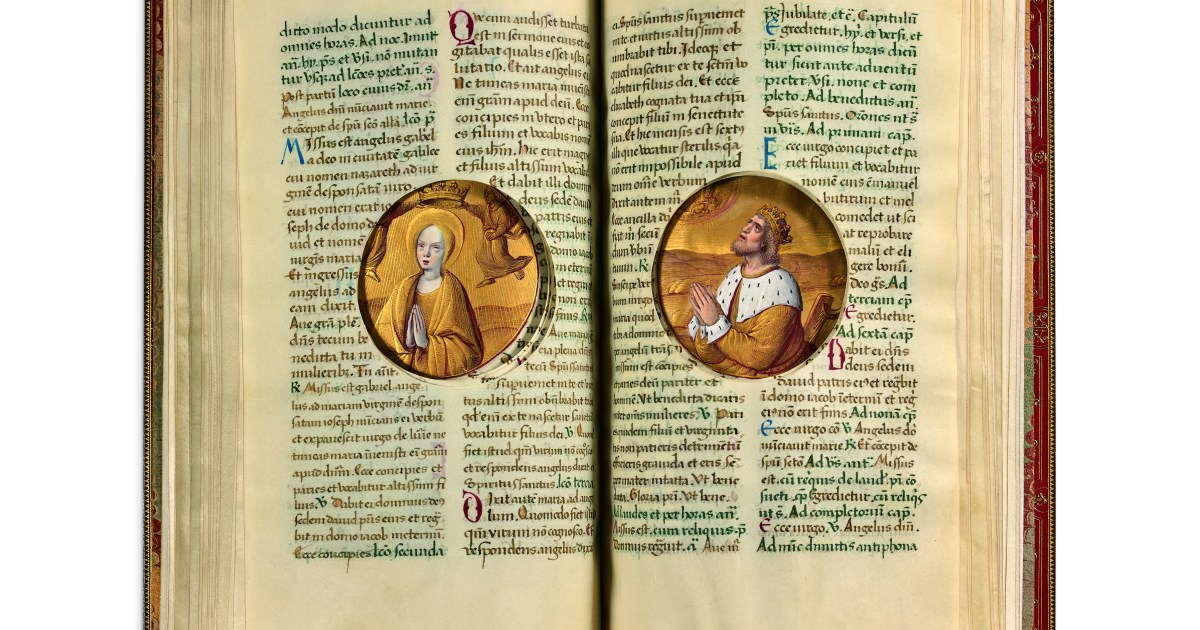 ditto modo dicuntur ad
omnes horas. Ad noc. Inuit
añ. hy. ps et Vsi. nō mutan
tur vsqꝫ ad lcōes pret. añ. s.
Post partū loco cuius dr̄. añ
Angelus dn̄i nūciauit marie.
et cōcepit de spū scō allā. lcō p̄
Missus est angelus gabel
a deo in ciuitatē galilee
cui nomen nazareth ad uir
ginē desponsatā uiro
cui nomen erat io
seph de domo da
uid et nomē
uirgīs maria
Et ingressus
angelus ad
eam dixit.
Aue grā plē.
dn̄s tecum be
nedicta tu in
mulieribꝫ. Tu añt.
℞ Missus est gabriel ange
lus ad mariam virginē despon
satam ioseph nūcians ei verbū
et expauescit uirgo de lumine ne
timeas maria inuenisti em̄ grām
apud dn̄m. Ecce concipies et
paries et vocabitur altissimi fi
lius. ℣. Dabit ei dominus deꝰ
sedem dauid p̄ris eius et reg
bit in domo iacob ineternū.
Ecce concipies lcō secunda
Que cum audisset turbata
est in sermone eius et co
gitabat qualis esset ista sa
lutatio. Et ait angelus ei
Ne timeas maria inuenisti
enī grām apud deū. Ecce
concipies in utero et pari
es filium et vocabis nomē
eius ihm̄. Hic erit magnꝰ
et filius altissimi vocabit
Et dabit illi domin
deus sedē dauid
patris eius et
regnabit i
domo iacob
in eternū
et regni
non erit
finis
cia plena dn̄s
tecū Spūs sanctus
superueniet in te et vir
tus altissimi obū̄brabit tibi
qd' em̄ ex te nascetur sanctū
vocabitur filius dei. ℣ Quomō
fiet istud qm̄ virum nō cogⁿsco
et respondens angelus dixit ei
Spiritus sanctus. lcō tercia
Dixit autē maria ad ange
lum. Quomodo fiet istud
qm̄ virum nō cognosco. Et
respondens angelus dixit
ei. Spūs sanctus superueniet
in te et uirtus altissimi ob
umbrabit tibi. Ideoqꝫ et
quod nascetur ex te sctm̄ vo
cabitur filius dei. Et ecce
elizabeth cognata tua et ip̄a
concepit filium in senectute
sua. Et hic mensis est sextꝰ
illi que vocatur sterilis q̄a
non erit impossibile apud
deum om̄e verbum
Dixit autem m̄
ecce ancilla do
fiat m̄ secun
dum vbū
tuum. ℞
Suscipe ver
bum uirgo
maria quod
tibi a domino
per angelū trās
missum est cōcipies
et paries deū pariter et
hominē Vt benedicta dicaris
inter om̄es mulieres. ℣ Pari
es quidem filium et virginita
tis non patieris detrimētū
efficieris grauida et eris se
mper mater intacta. Vt bene.
dicta. Gloria pri. Vt bene.
Ad laudes et per horas añ.
Missus est. cum reliquis. p̄
Dominus regnuit. a. Aue m̄
ps Jubilate, et c̄. Capitulū
Egredietur. hy. et versi. et
p̄i. per omnes horas dicū
tur sicut ante aduentū
preter Vsi. none et com
pleto. Ad benedictus añ.
Spūs sanctus. Orones ut s̄
in viis. Ad primam cap.
Ecce uirgo concipiet et pa
riet filium et vocabitur
nomē eius emanuel
butirum et mel
comedet ut sci
at reprobare
malū et eli
gere bonū.
deo gs̄. Ad
terciam cp̄
Egredietur.
Ad sextā cap
Dabit ei dn̄s
deus sedem
dauid patris eiꝰ et regbit
ī domo iacob īeternū et reg
ei nō erit finis Ad nonā cp̄
Ecce uirgo cō ℣ Angelus dō
nūciauit marie ℞ Et cōcepit de
spū setō. Ad vs. ant. Missus
est. cū requs de laud'. pi. cō
sueti. cp̄ Egredietur. cū reliqs
ut s̄. Ad completoriū cap.
Ecce uirgo. ℣. Angelus dn̄i.
Ad nūc dimitis antiphona